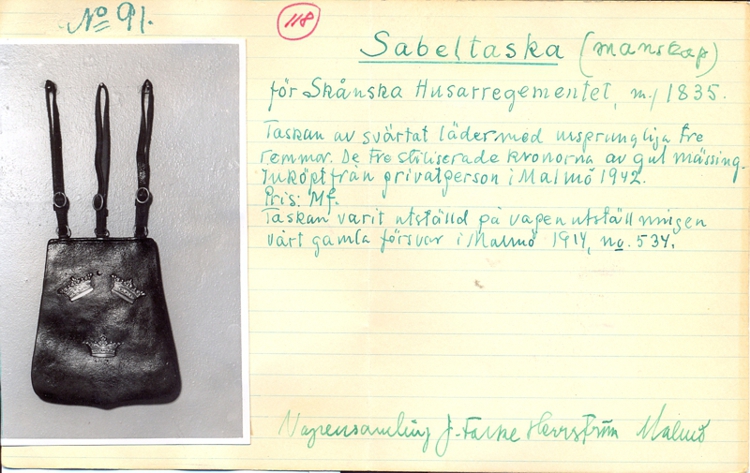 No 91.
118
Sabeltaska (manskap)
för Skånska Husarregementet, m/1835.
Taskan av svärtat läder med ursprungliga tre
remmar. De tre stiliserade kronorna av gul mässing.
Inköpt från privatperson i Malmö 1942.
Pris: Mf.
Taskan varit utställd på vapenutställningen
vårt gamla försvar i Malmö 1914, no. 534.
Vapensamling J. Herrström Malmö